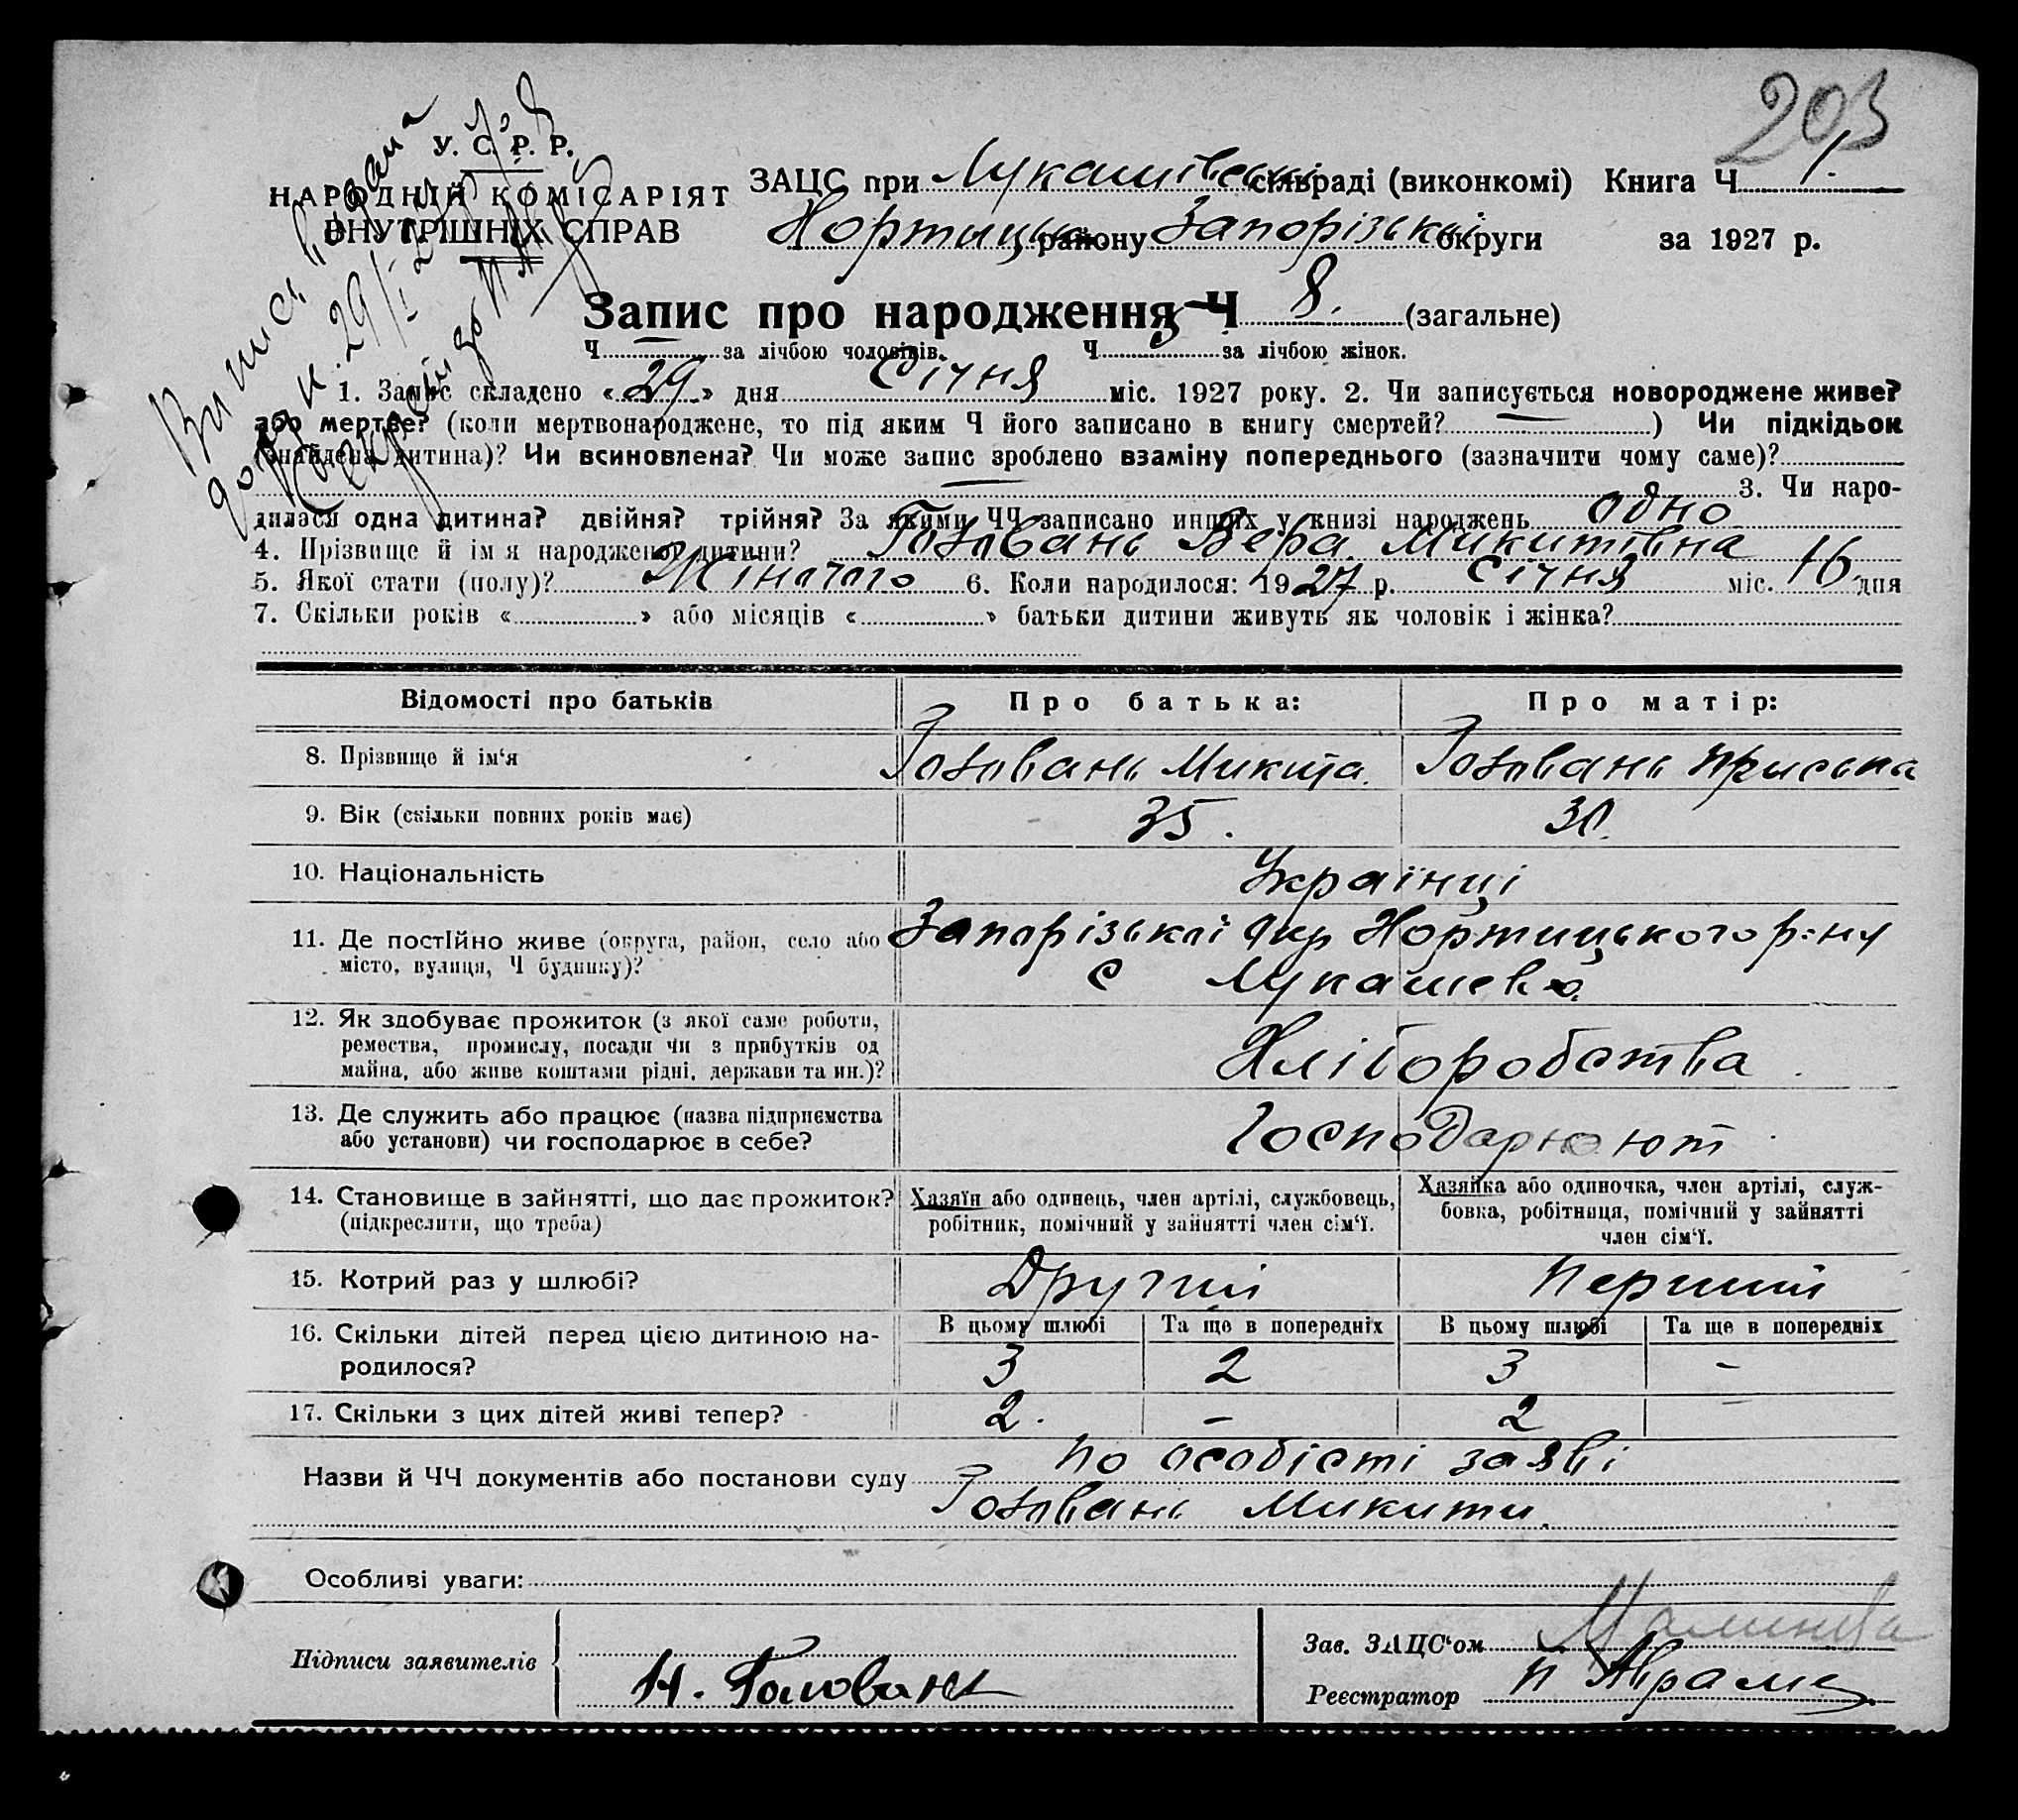 203
У. С. Р. Р.
НАРОДНІЙ КОМІСАРІЯТ
ВНУТРІШНІХ СПРАВ
Випись видана
ЗАЦС при Лукашівській сільраді (виконкомі) Книга Ч 1.
Хортицьк. району Запорізької округи за 1927 р.
Запис про народження Ч 8. (загальне)
Ч — за лічбою чоловіків. Ч 5 за лічбою жінок.
1. Запис складено «29» дня Січня міс. 1927 року. 2. Чи записується новороджене живе?
або мертве? (коли мертвонароджене, то під яким Ч його записано в книгу смертей? — ) Чи підкідьок
(знайдена дитина)? Чи всиновлена? Чи може запис зроблено взаміну попереднього (зазначити чому саме)?
— 3. Чи наро-
дилася одна дитина? двійня? трійня? За якими ЧЧ записано инших у книзі народжень одно
4. Прізвище й ім я народженої дитини? Головань Вера Микитівна
5. Якої стати (полу)? Жіночого 6. Коли народилося: 1927 р. Січня міс. 16 дня
7. Скільки років « » або місяців « » батьки дитини живуть як чоловік і жінка?
Відомості про батьків Про батька: Про матір:
8. Прізвище й ім‘я Головань Микита. Головань Приська
9. Вік (скільки повних років має) 35. 30.
10. Національність Українці
11. Де постійно живе (округа, район, село або Запорізької Окр Хортицького р-ну
місто, вулиця, Ч будинку)? С Лукашева
12. Як здобуває прожиток (з якої саме роботи,
ремества, промислу, посади чи з прибутків од
майна, або живе коштами рідні, держави та ин.)? Хліборобства
13. Де служить або працює (назва підприємства
або установи) чи господарює в себе? Господарюют
14. Становище в зайнятті, що дає прожиток? Хазяїн або одинець, член артілі, службовець, Хазяйка або одиночка, член артілі, служ-
(підкреслити, що треба) робітник, помічний у зайнятті член сім‘ї. бовка, робітниця, помічний у зайнятті
член сім‘ї.
15. Котрий раз у шлюбі? Другий Перший
16. Скільки дітей перед цією дитиною на- В цьому шлюбі Та ще в попередніх В цьому шлюбі Та ще в попередніх
родилося? 3 2 3 -
17. Скільки з цих дітей живі тепер? 2. - 2 -
Назви й ЧЧ документів або постанови суду по особісті заяві
Головань Микити.
Особливі уваги:
Підписи заявителів Н. Головань
Зав. ЗАЦС‘ом
Реєстратор